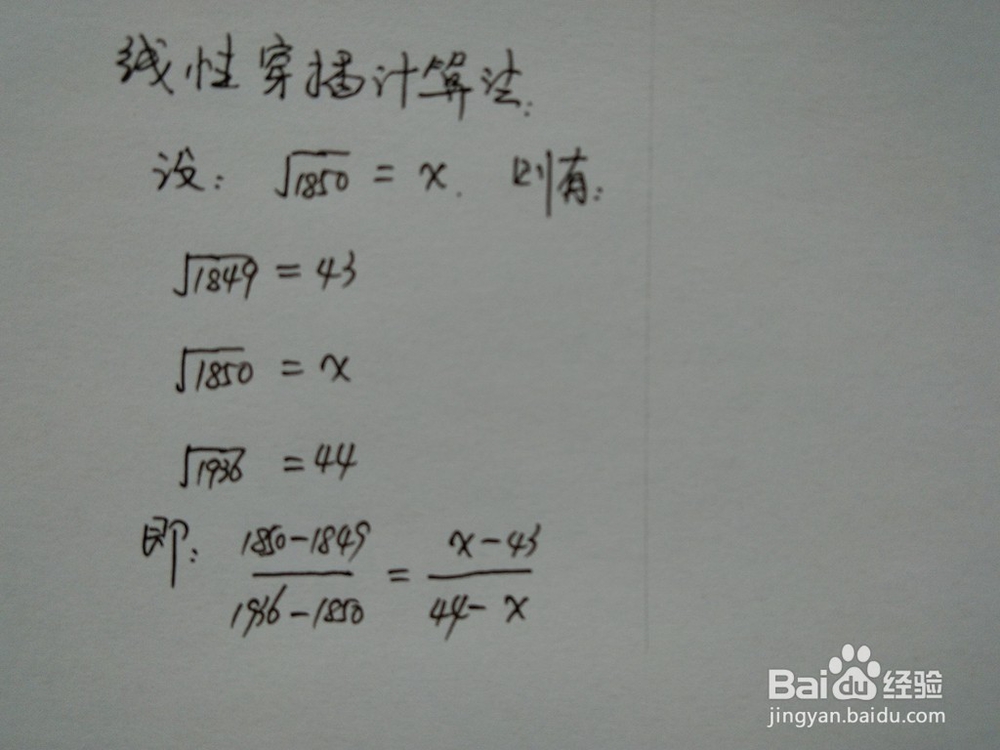 线性穿插计算法:
设: √1850 = x. 则有:
√1849 = 43
√1850 = x
√1936 = 44
即: (1850-1849)/(1936-1850) = (x-43)/(44-x)
Baidu经验
jingyan.baidu.com